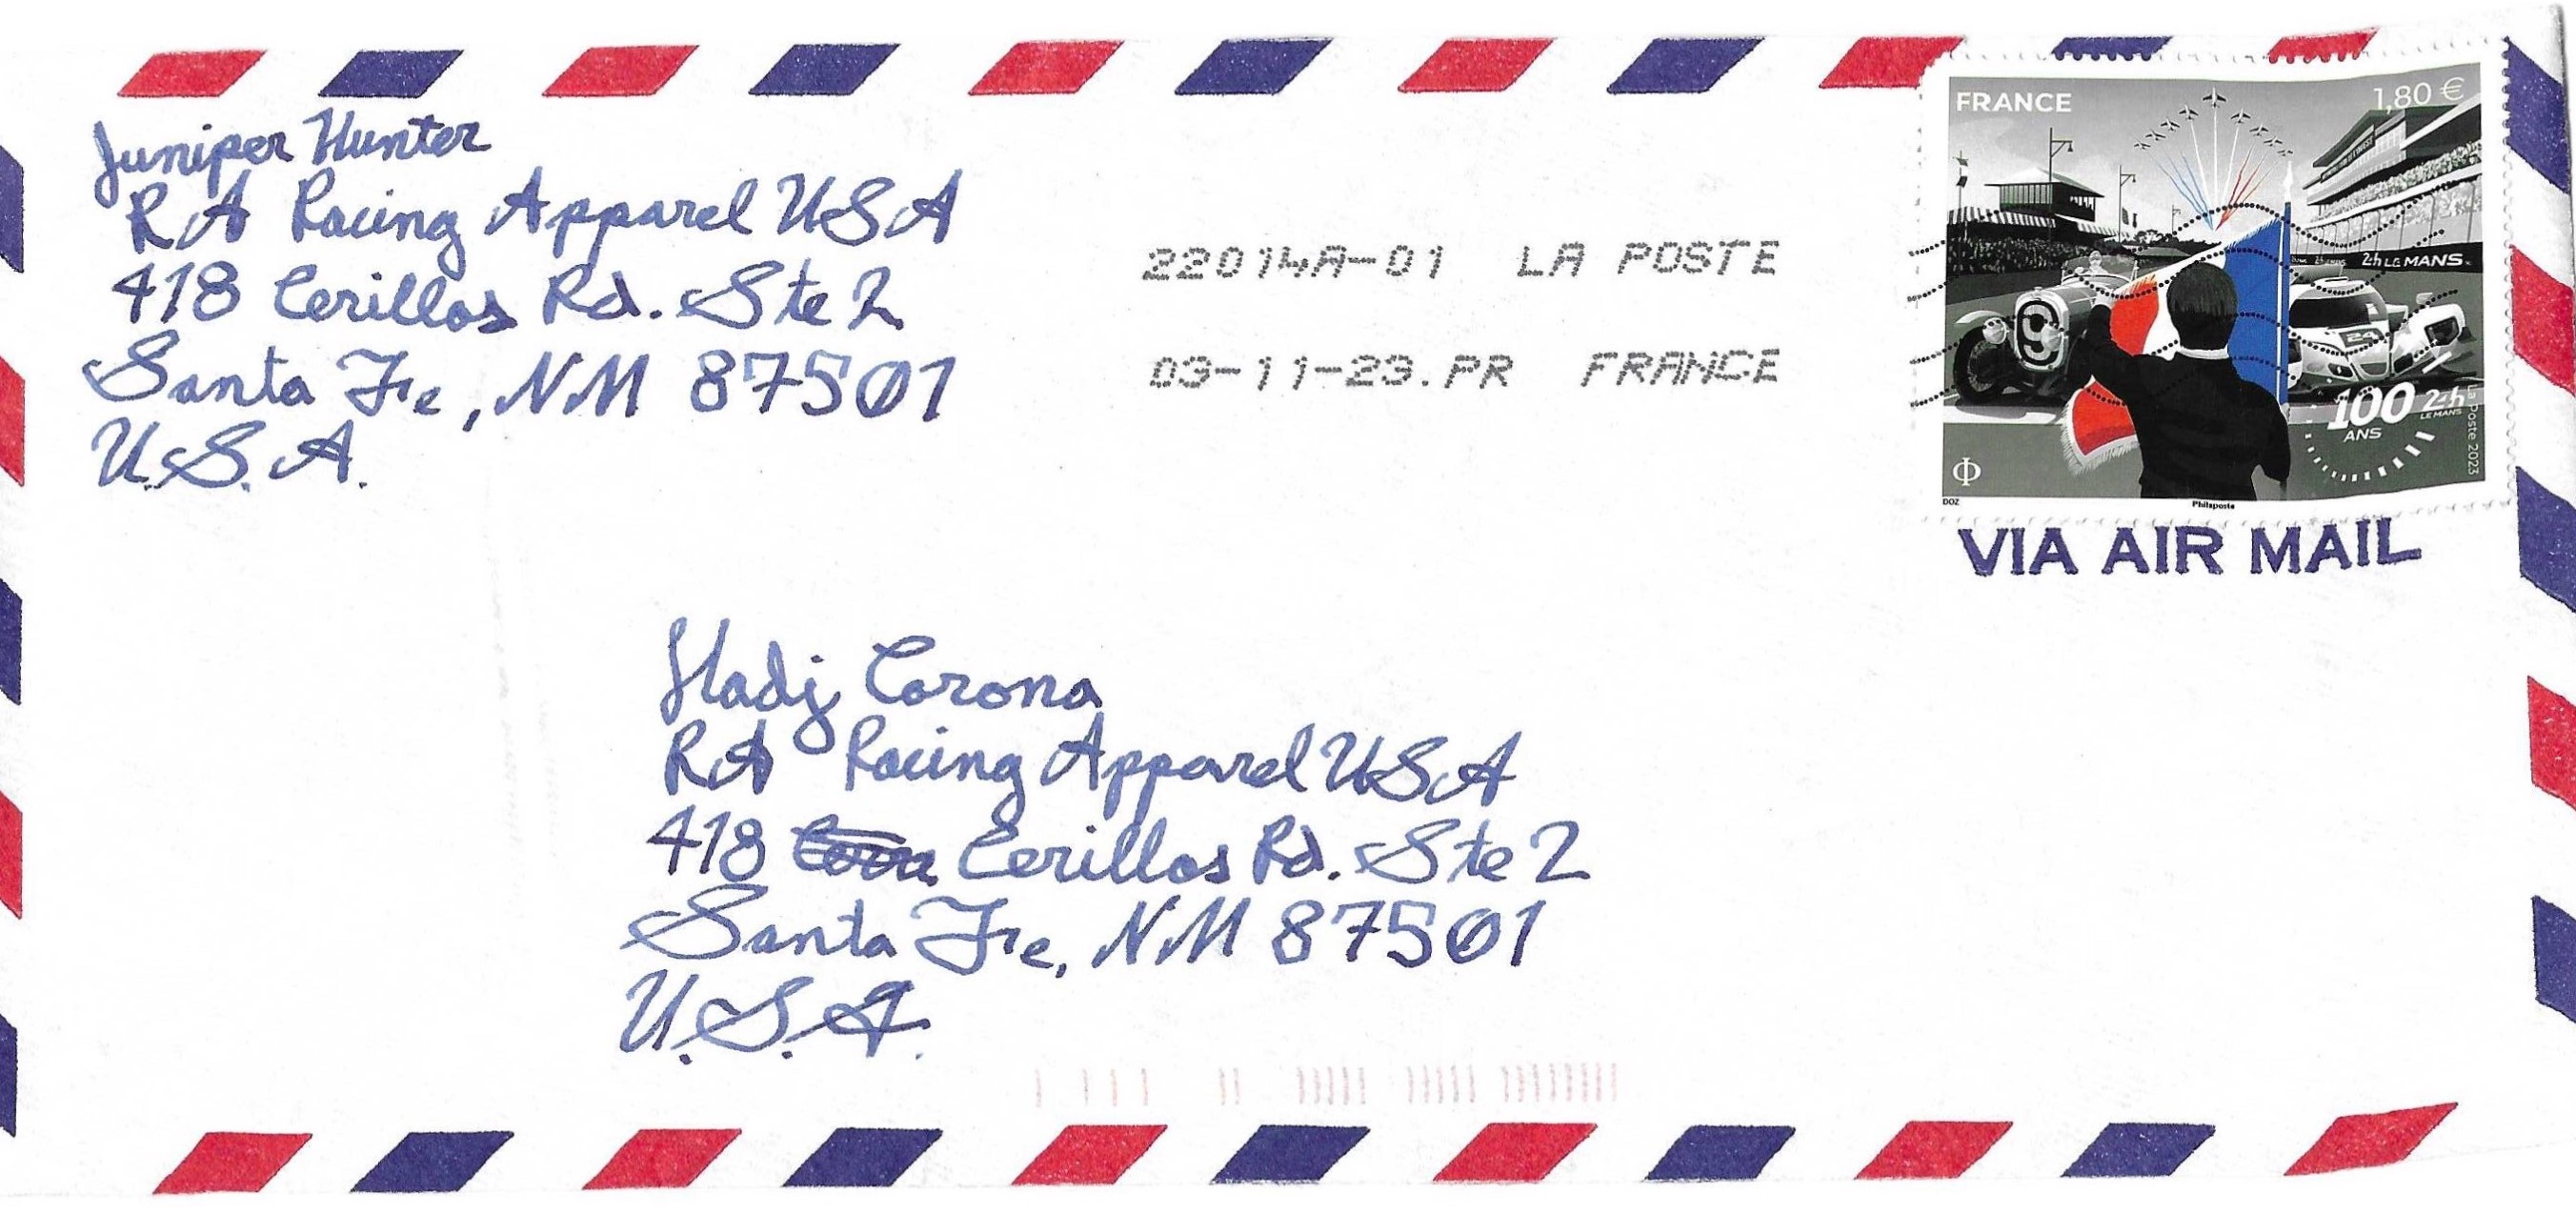 Juniper Hunter
RA Racing Apparel USA
418 Cerillos Rd. Ste 2
Santa Fe, NM 87501
U.S.A.
22014A-01 LA POSTE
03-11-23.PR FRANCE
FRANCE 1,80 €
24h LE MANS
9
24
100 24h
ANS LE MANS
La Poste 2023
Φ
DOZ Philaposte
VIA AIR MAIL
Hadj Corona
RA Racing Apparel USA
418 Cerillos Rd. Ste 2
Santa Fe, NM 87501
U.S.A.